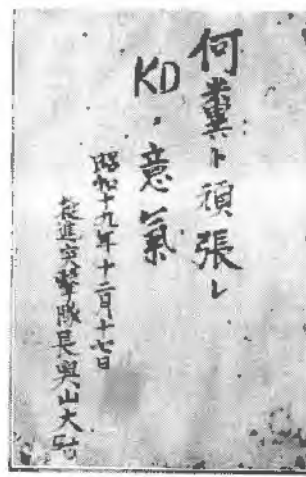 何糞ト頑張レ
KD・意氣
昭和十九年十二月十七日
挺進突撃隊長興山大尉